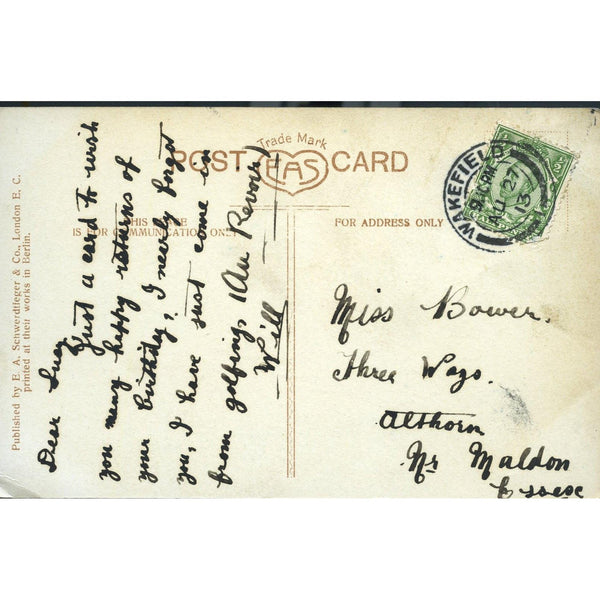 Trade Mark
POST EAS CARD
THIS SPACE
IS FOR COMMUNICATION ONLY
FOR ADDRESS ONLY
Published by E. A. Schwerdtfeger & Co., London E. C.
printed at their works in Berlin.
WAKEFIELD
AU 27
13
Dear
Just a card to wish
you many happy returns of
your birthday, I nearly forgot
you, I have just come in
from golfing, (Au Revoir)
Will
Miss Bower.
Three Ways.
Althorn
Nr Maldon
Essex